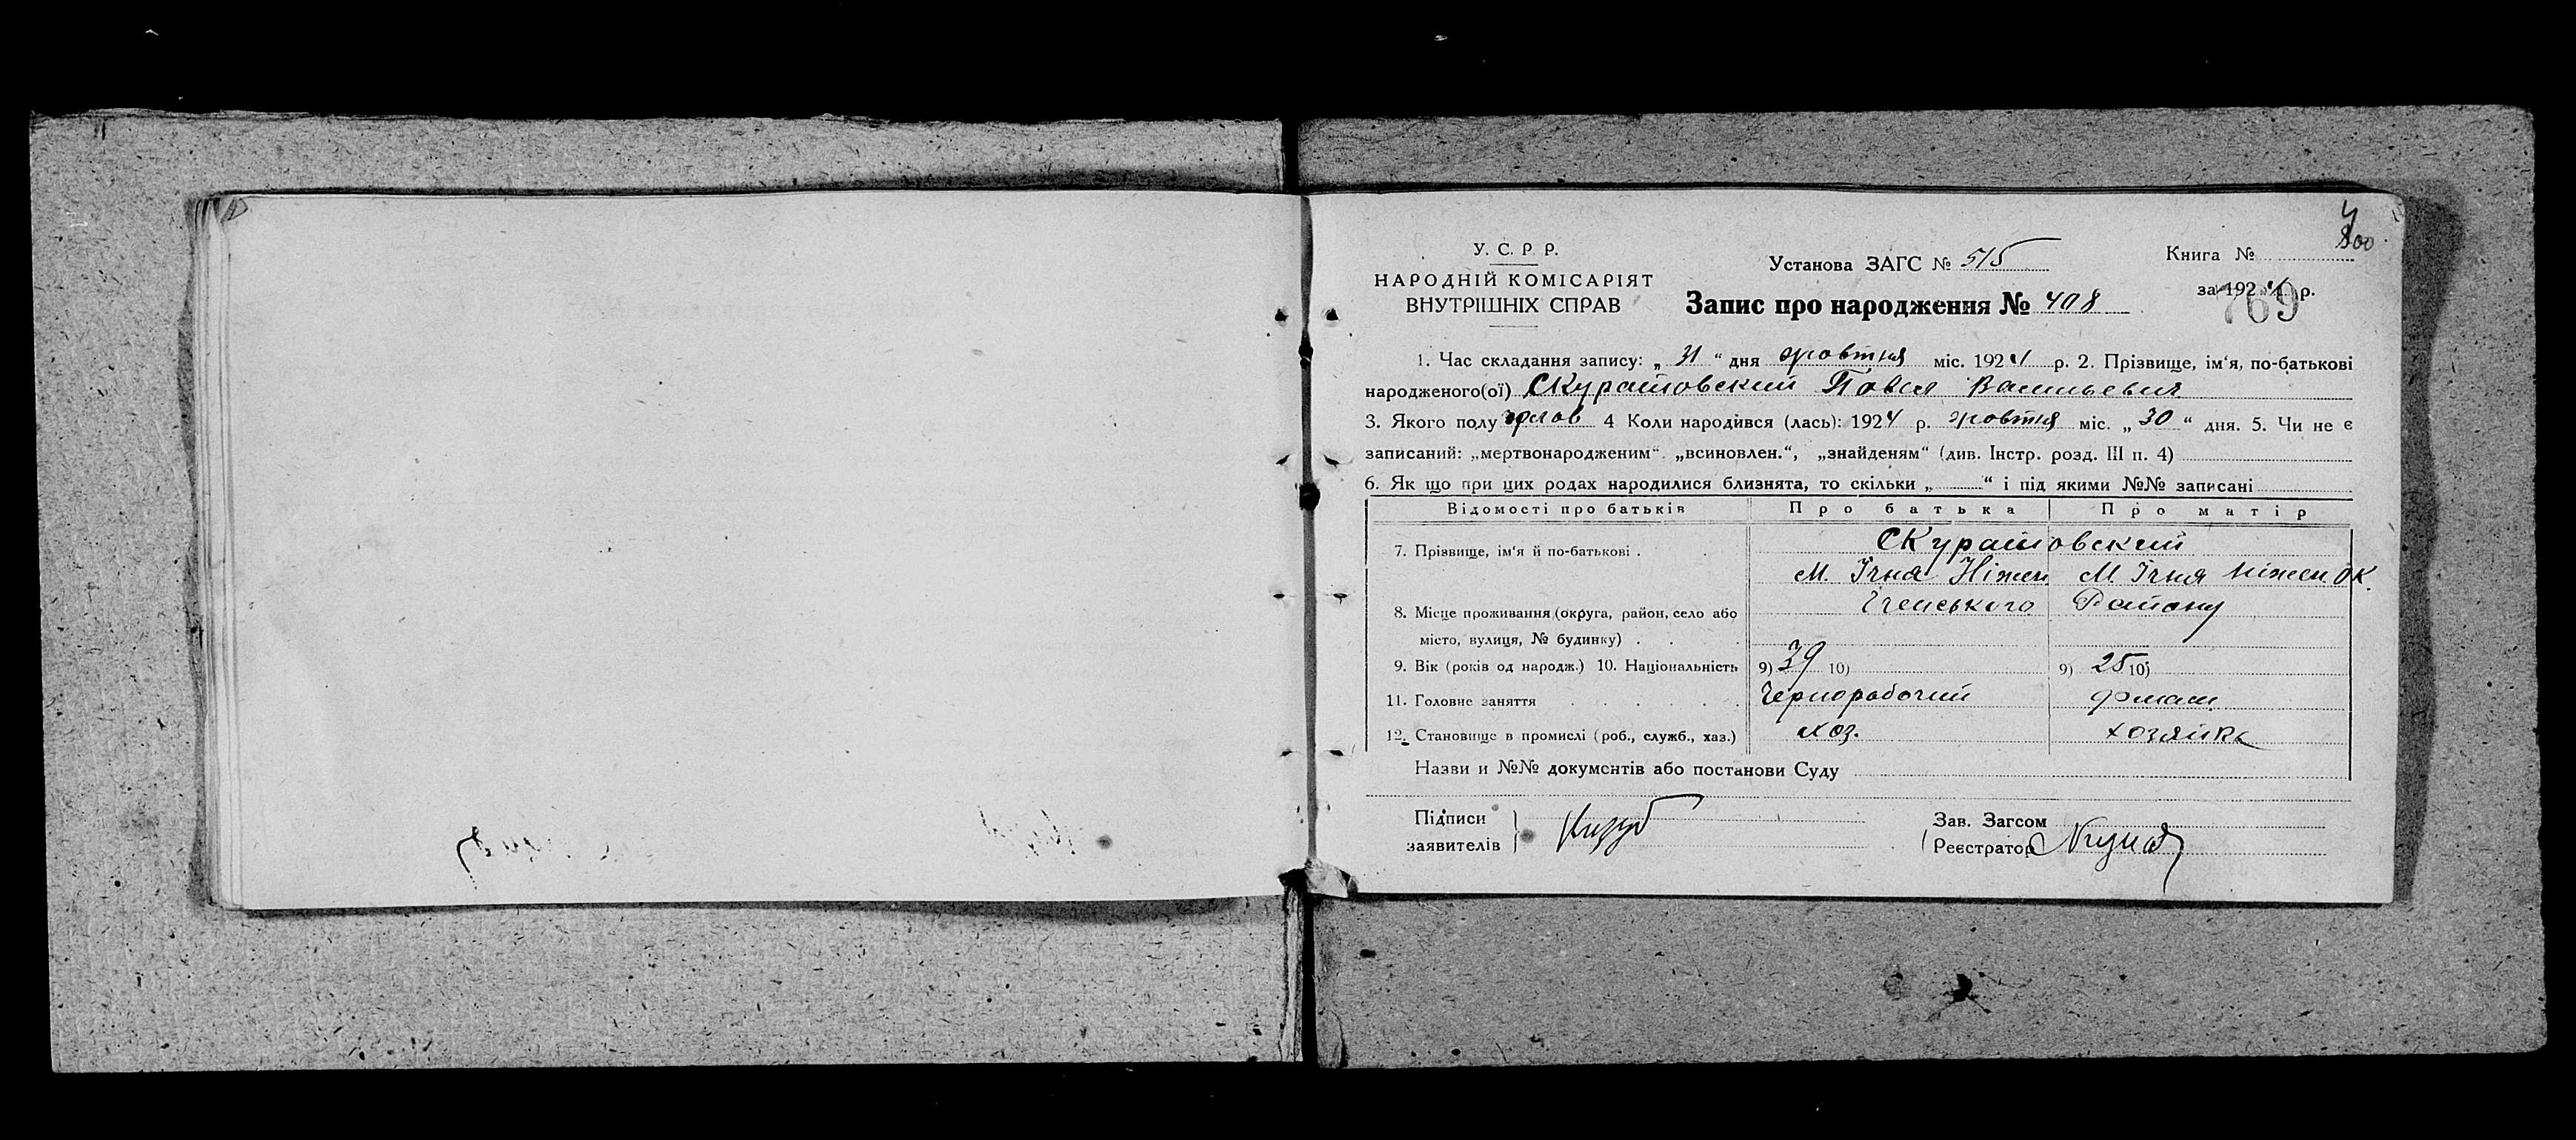 У. С. Р. Р.
НАРОДНІЙ КОМІСАРІЯТ
ВНУТРІШНІХ СПРАВ
Установа ЗАГС № 515
Запис про народження № 408
Книга №
800
за 1924 р.
769
1. Час складання запису: „ 31 “ дня жовтня міс. 1924 р. 2. Прізвище, ім‘я, по-батькові
народженого(ої) Скуратовский Павел Васильевич
3. Якого полу 4 Коли народився (лась): 1924 р. жовтня міс. „ 30 “ дня. 5. Чи не є
записаний: „мертвонародженим“ „всиновлен.“, „знайденям“ (див. Інстр. розд. III п. 4)
6. Як що при цих родах народилися близнята, то скільки „ “ і під якими №№ записані
Відомості про батьків Про батька Про матір
7. Прізвище, ім‘я й по-батькові . Скуратовский
м. Ічня Ніжен м. Ічня Ніжен. ок.
8. Місце проживання (округа, район, село або Іченського Району
місто, вулиця, № будинку) .
9. Вік (років од народж.) 10. Національність 9) 39 10) 9) 25 10)
11. Головне заняття Чернорабочий
12. Становище в промислі (роб., служб., хаз.) хоз. хозяйка
Назви и №№ документів або постанови Суду
Підписи
заявителів
Зав. Загсом
Реєстратор